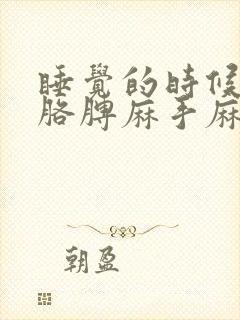 睡覺的時候
胳脾麻手麻
朝盈